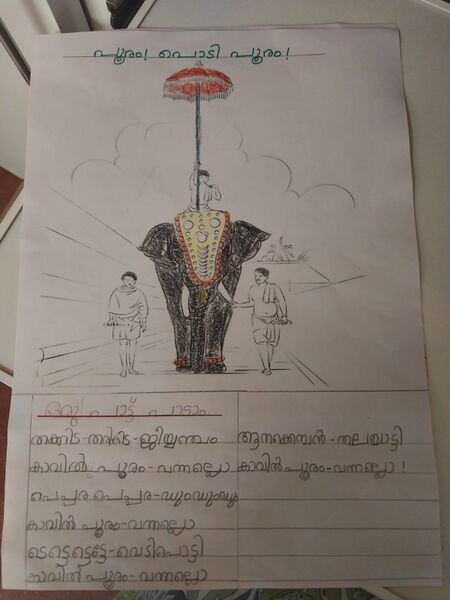 പൂരം! പൊടി പൂരം!
ഒരു പാട്ട് പാടാം
തക്കിട-തരികിട-ജീയ്യന്തം
കാവിൽ പൂരം-വന്നല്ലൊ
പെപ്പര പെപ്പര-ഡുംഡുംഡും
കാവിൽ പൂരം-വന്നല്ലൊ
ടെട്ടെട്ടെട്ടേ-വെടിപൊട്ടി
കാവിൽ പൂരം-വന്നല്ലൊ
ആനക്കൊമ്പൻ-തലയാട്ടി
കാവിൽ പൂരം-വന്നല്ലൊ!